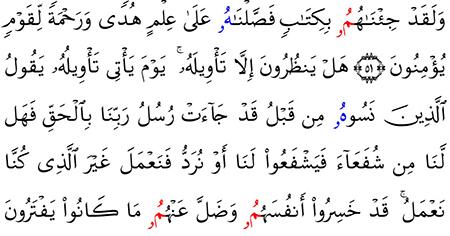 وَلَقَدْ جِئْنَٰهُمُۥ بِكِتَٰبٍ فَصَّلْنَٰهُۥ عَلَىٰ عِلْمٍ هُدًى وَرَحْمَةً لِّقَوْمٍ
يُؤْمِنُونَ ٥١ هَلْ يَنظُرُونَ إِلَّا تَأْوِيلَهُۥۚ يَوْمَ يَأْتِى تَأْوِيلُهُۥ يَقُولُ
الَّذِينَ نَسُوهُۥ مِن قَبْلُ قَدْ جَآءَتْ رُسُلُ رَبِّنَا بِالْحَقِّ فَهَل
لَّنَا مِن شُفَعَآءَ فَيَشْفَعُوا۟ لَنَا أَوْ نُرَدُّ فَنَعْمَلَ غَيْرَ الَّذِى كُنَّا
نَعْمَلُۚ قَدْ خَسِرُوٓا۟ أَنفُسَهُمُۥ وَضَلَّ عَنْهُمُۥ مَا كَانُوا۟ يَفْتَرُونَ